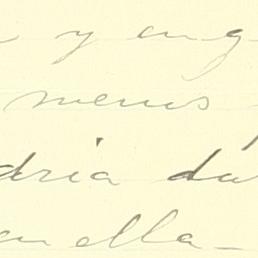 y eng
menos
dria du
en ella